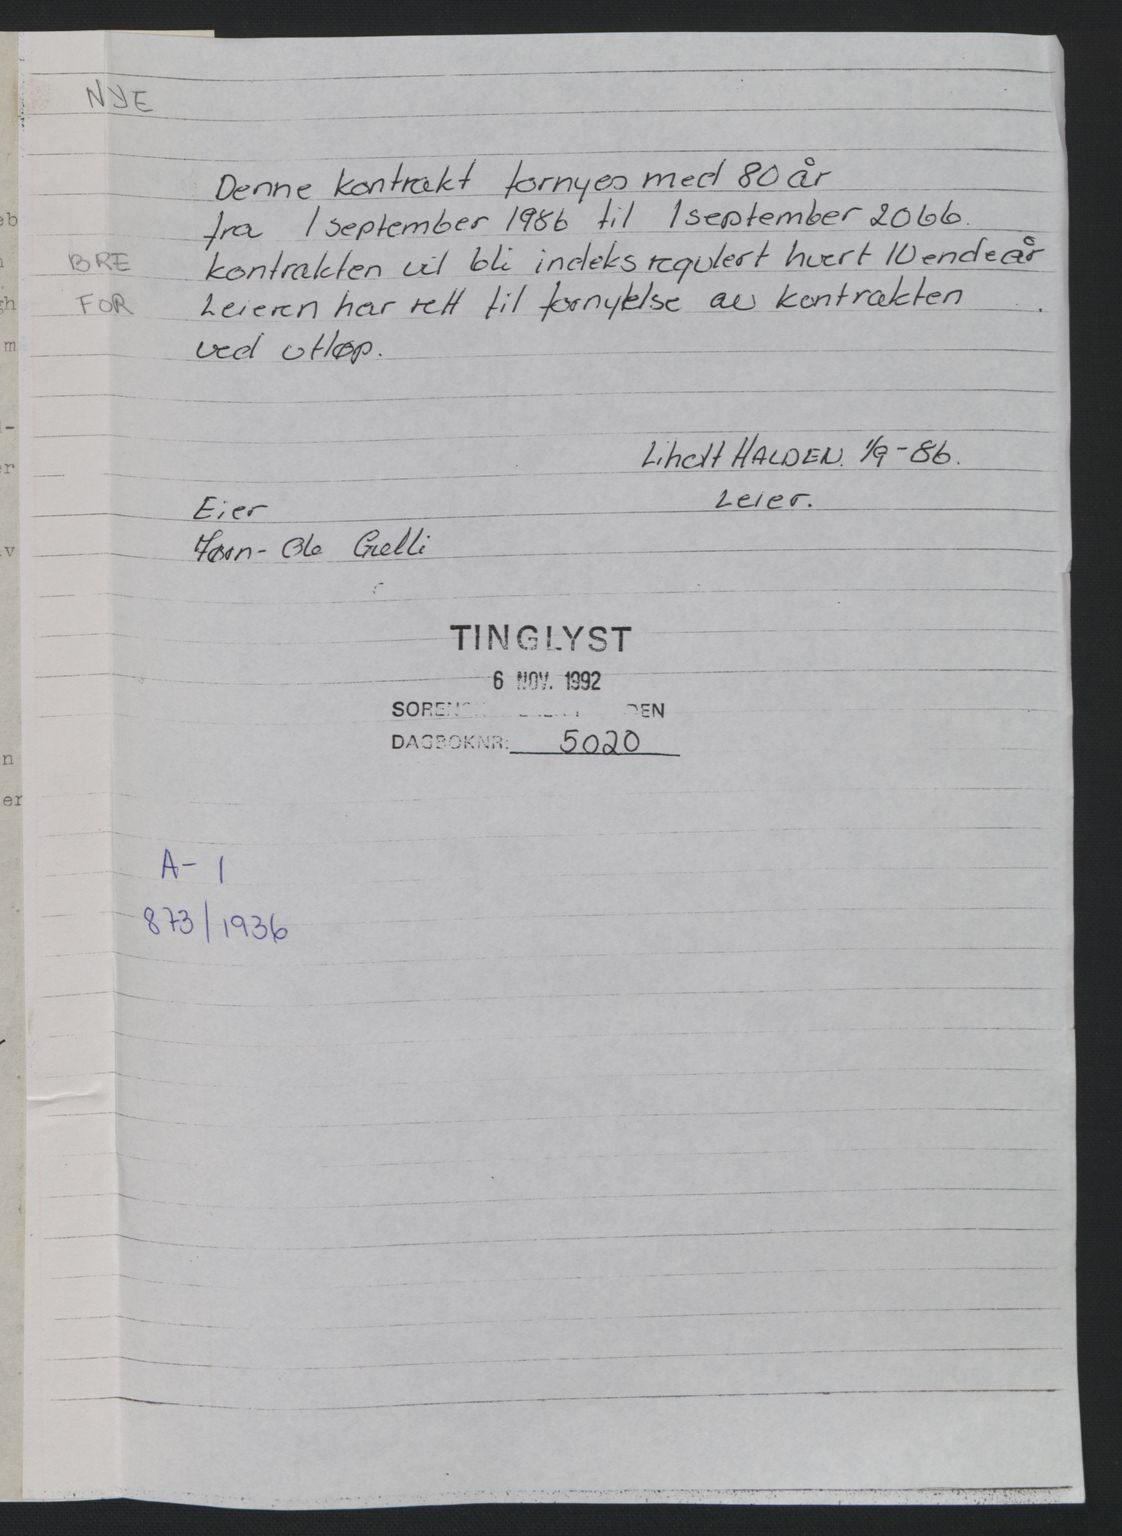 NYE
Denne kontrakt fornyes med 80 år
fra 1 september 1986 til 1 september 2066.
BRE
kontrakten vil bli indeksregulert hvert 10 ende år
FOR
Leieren har rett til fornyelse av kontrakten
ved utløp.
HALDEN. 1/9-86.
Leier.
Eier
Jørn-Ole Grelli
TINGLYST
6 NOV. 1992
DAGBOKNR: 5020
A-1
873/1936